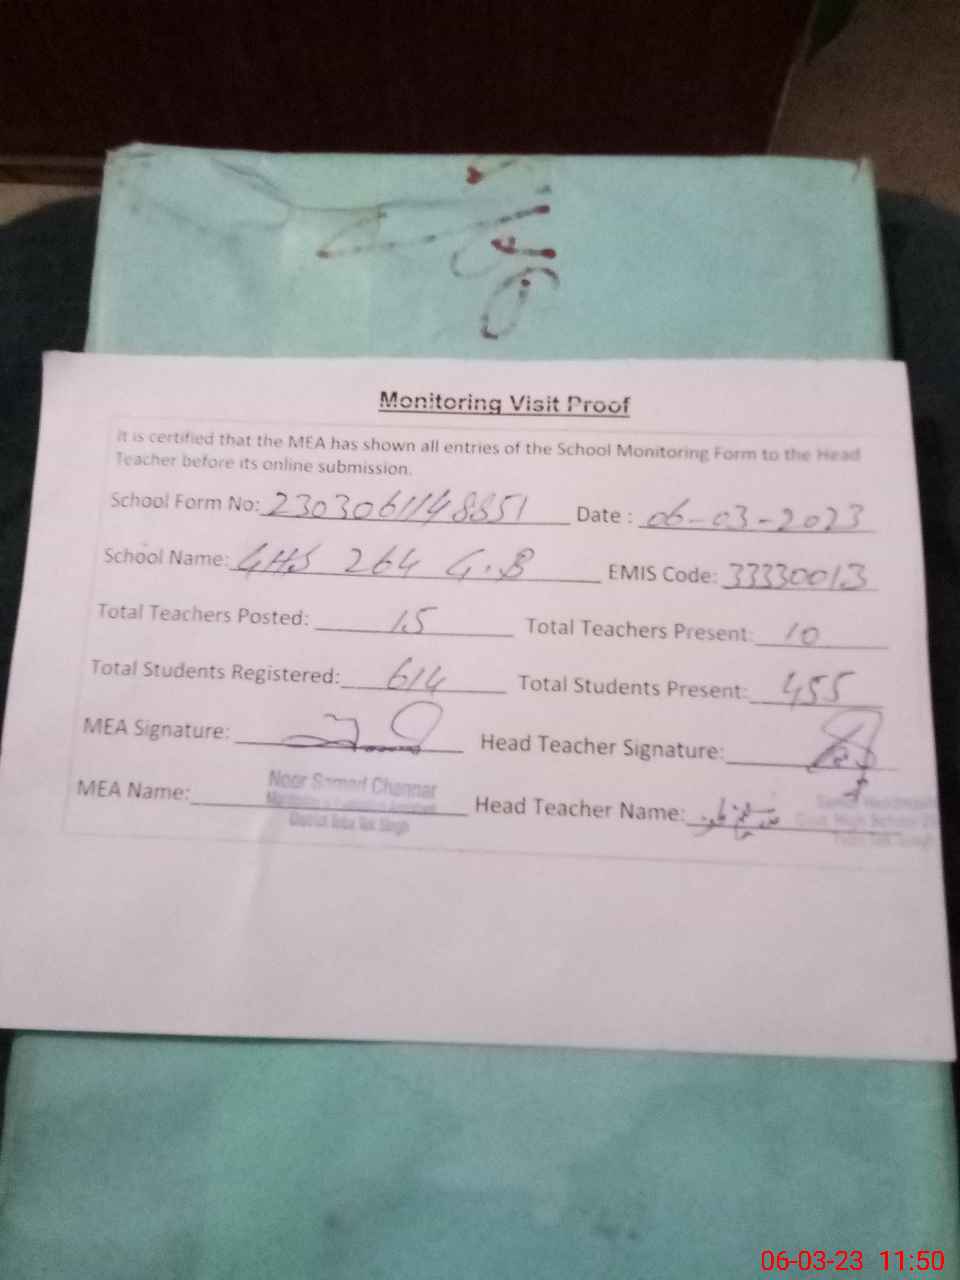 Monitoring Visit Proof
It is certified that the MEA has shown all entries of the School Monitoring Form to the Head
Teacher before its online submission.
School Form No: 2303061148851 Date : 06-03-2023
School Name: GHS 264 G.B EMIS Code: 33330013
Total Teachers Posted: 15 Total Teachers Present: 10
Total Students Registered: 614 Total Students Present: 455
MEA Signature: Head Teacher Signature:
MEA Name: Noor Samad Channar Head Teacher Name:
District Toba Tek Singh
06-03-23 11:50